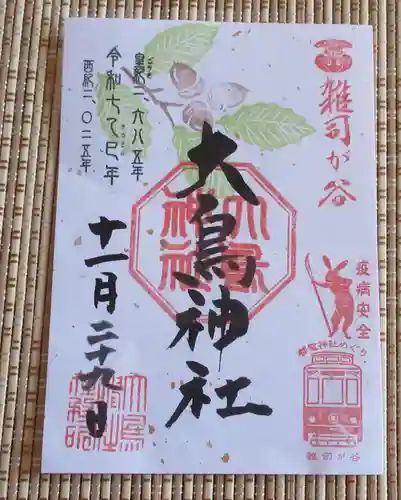 雑司が谷
皇紀二、六八五年
令和七乙巳年
西紀二、〇二五年
大鳥神社
十一月二十九日
大鳥神社
疫病安全
都電神社めぐり
雑司が谷